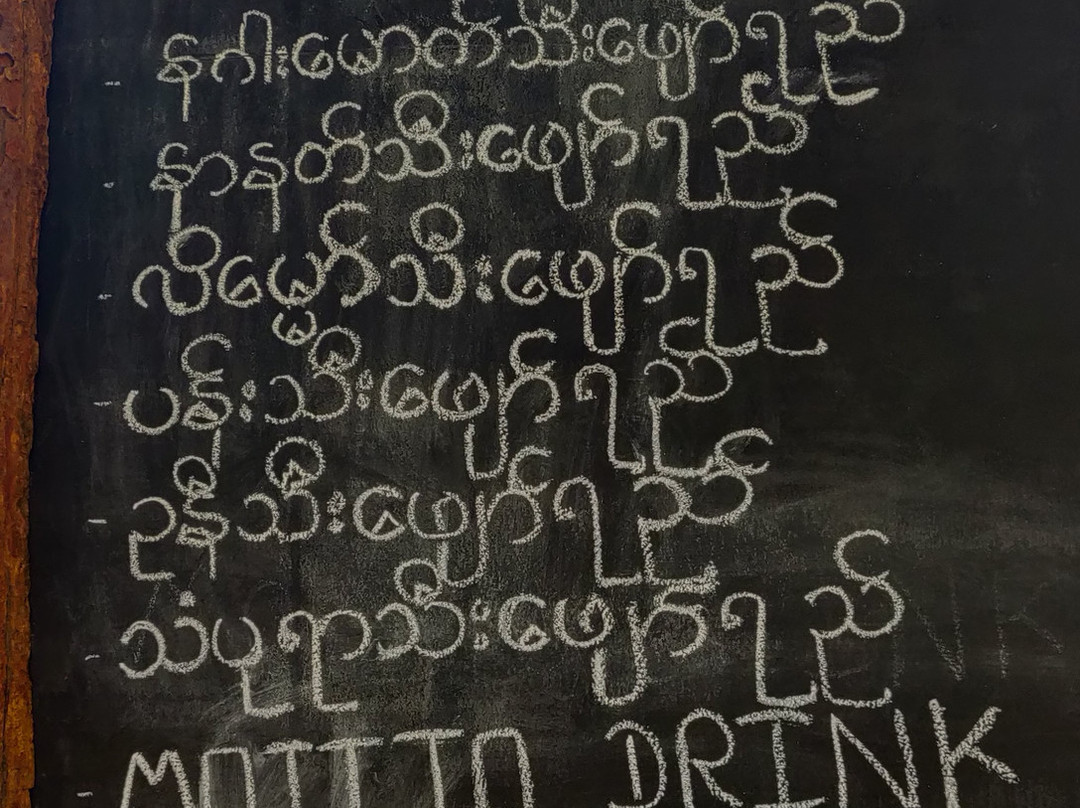 - နဂါးမောက်သီးဖျော်ရည်
- နာနတ်သီးဖျော်ရည်
- လိမ္မော်သီးဖျော်ရည်
- ပန်းသီးဖျော်ရည်
- ဥန့်သီးဖျော်ရည်
- သံပုရာသီးဖျော်ရည်
- MOJITO DRINK